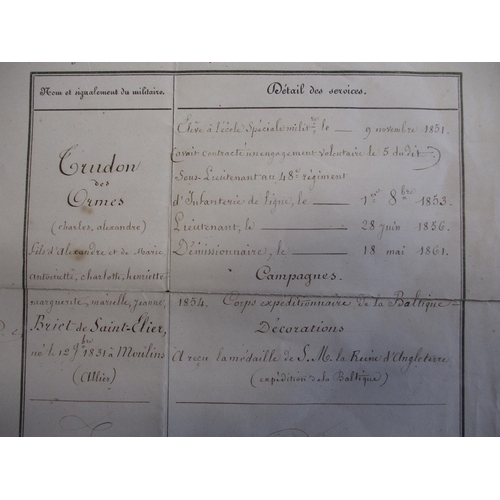 Nom et signalement du militaire.
Détail des services.
Trudon
des
Ormes
(charles, alexandre)
fils d'Alexandre et de Marie
antoinette, charlotte, henriette
marguerite, marielle, jeanne,
Briet de Saint-Elier,
né le 12 9bre 1831 à Moulins
(Allier)
Élève à l'école Spéciale militre le — 9 novembre 1851.
(avait contracté un engagement volontaire le 5 du dit)
Sous-Lieutenant au 48e régiment
d'Infanterie de ligne, le — 1er 8bre 1853.
Lieutenant, le — 28 juin 1856.
Démissionnaire, le — 18 mai 1861.
Campagnes.
1854. Corps expéditionnaire de la Baltique
Décorations
A reçu la médaille de S. M. la Reine d'Angleterre
(expédition de la Baltique)